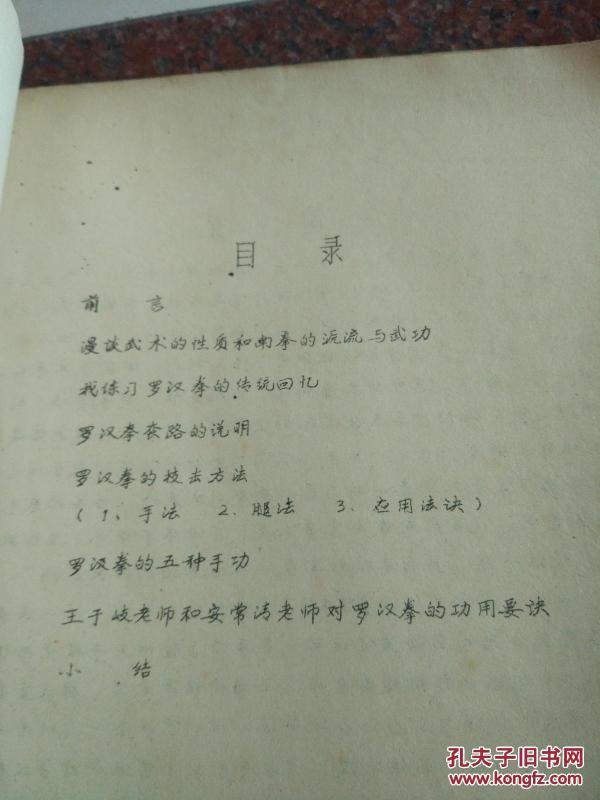 目 录
前 言
漫谈武术的性质和南拳的派流与武功
我练习罗汉拳的传统回忆
罗汉拳套路的说明
罗汉拳的技击方法
(1、手法 2、腿法 3、应用法诀)
罗汉拳的五种手功
王于岐老师和安常涛老师对罗汉拳的功用要诀
小 结
孔夫子旧书网
www.kongfz.com